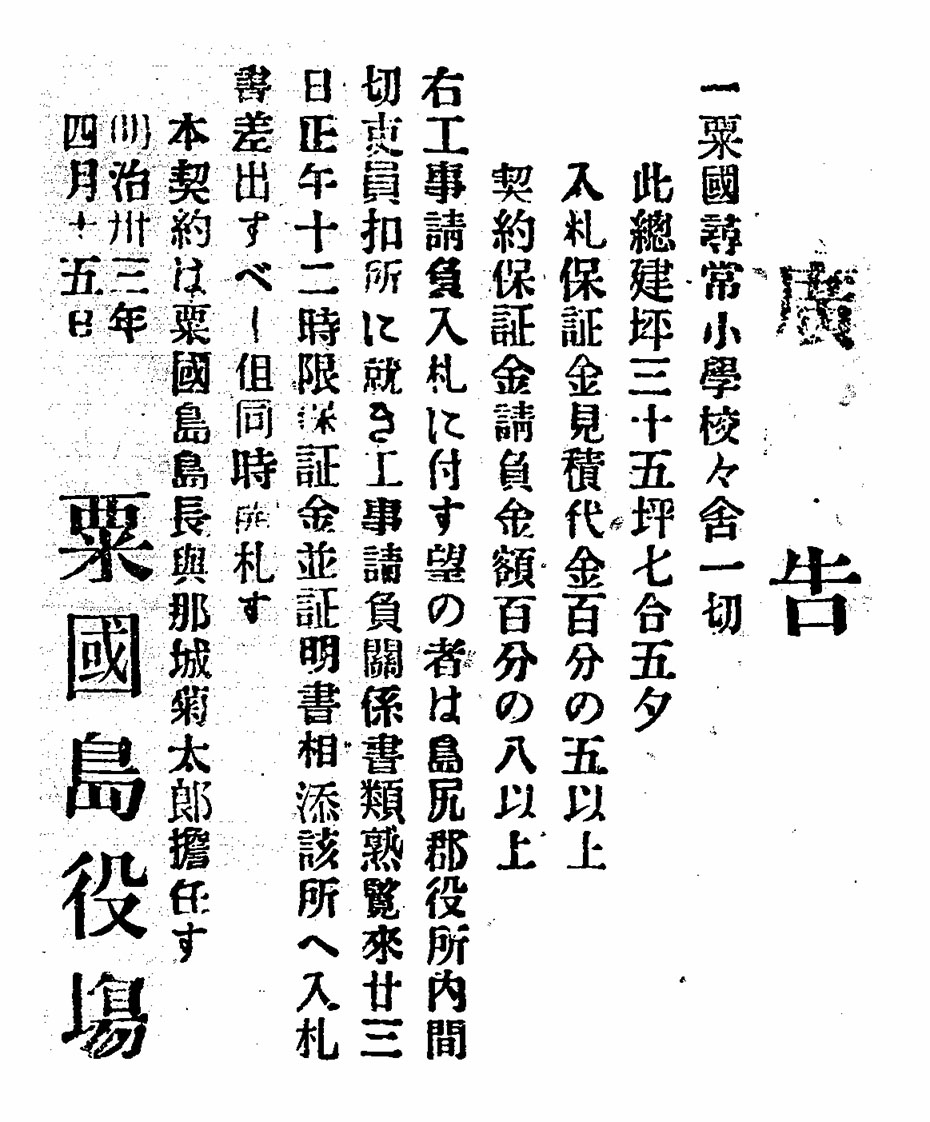 廣告
一粟國尋常小學校々舍一切
此總建坪三十五坪七合五夕
入札保証金見積代金百分の五以上
契約保証金請負金額百分の八以上
右工事請負入札に付す望の者は島尻郡役所内間
切吏員扣所に就き工事請負關係書類熟覽來廿三
日正午十二時限保証金並証明書相添該所へ入札
書差出すべし但同時開札す
本契約は粟國島島長與那城菊太郎擔任す
明治卅三年
四月十五日
粟國島役塲